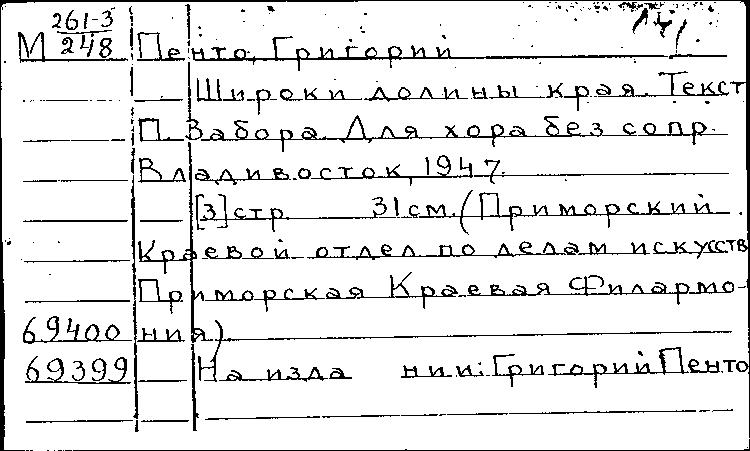 М 261-3/248 Пенто, Григорий 14/
Широки долины края. Текст
П. Забора. Для хора без сопр.
Владивосток, 1947.
[3]стр. 31см. (Приморский
Краевой отдел по делам искусств
Приморская Краевая Филармо-
69400 ния).
69399 На изда нии: Григорий Пенто